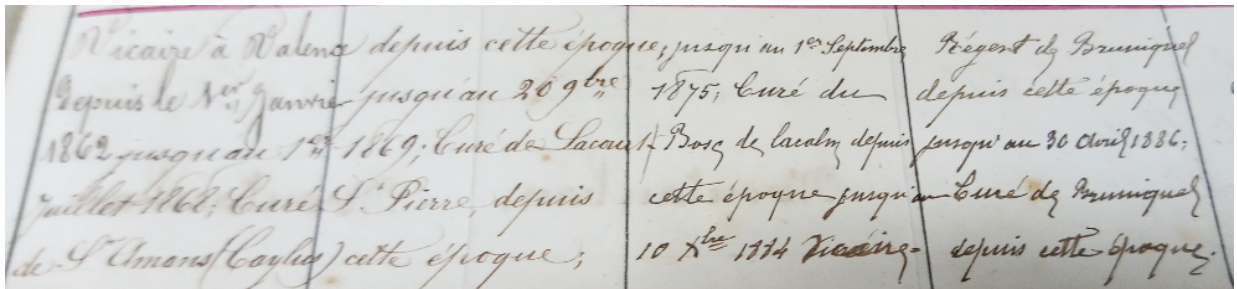 Vicaire à Valence
depuis le 1er Janvier
1862 jusqu'au 1er
Juillet 1868; Curé
de St Amans (Caylus)
depuis cette époque,
jusqu'au 20 9bre
1869; Curé de Lacourt-
St. Pierre, depuis
cette époque;
jusqu'au 1er Septembre
1875; Curé du
Bosc de lacalm depuis
cette époque jusqu'au
10 Xbre 1884 Vicaire-
Régent de Bruniquel
depuis cette époque
jusqu'au 30 Avril 1886;
Curé de Bruniquel
depuis cette époque.